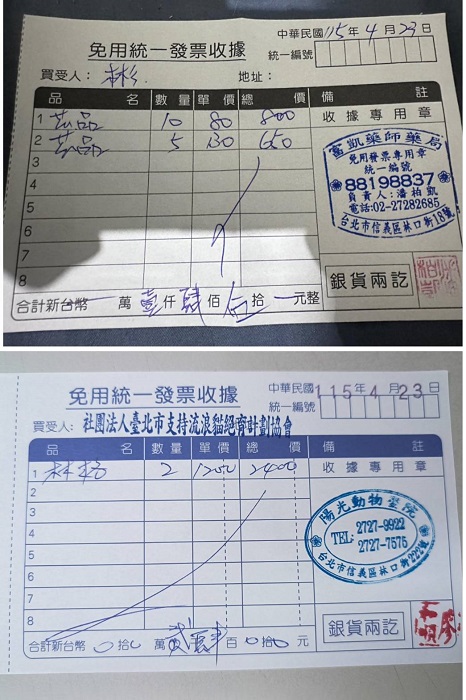 免用統一發票收據
中華民國115年4月23日
統一編號
買受人：彬 地址：
品名 數量 單價 總價 備註
1 藥品 10 80 800 收據專用章
2 藥品 5 130 650
3
4
5
6
7
8
富凱藥師藥局
免用發票專用章
統一編號
88198837
負責人：潘柏凱
電話:02-27282685
台北市信義區林口街18號
銀貨兩訖
合計新台幣 萬壹仟肆佰伍拾 元整
免用統一發票收據
中華民國115年4月23日
統一編號
買受人：社團法人臺北市支持流浪貓絕育計劃協會
品名 數量 單價 總價 備註
1 2 1200 2400 收據專用章
2
3
4
5
6
7
8
陽光動物醫院
TEL: 2727-9922
2727-7575
台北市信義區林口街222號
銀貨兩訖
合計新台幣 0拾0萬貳仟肆百0拾0元